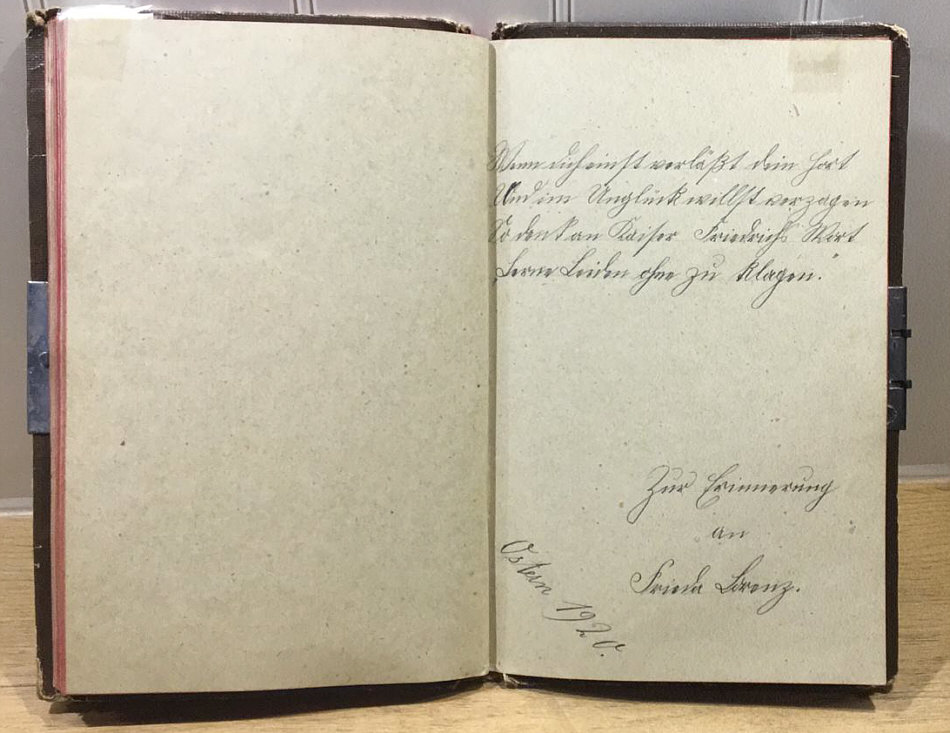 Wenn dich einst verläßt dein Hort
Und im Unglück willst verzagen
So denk an Kaiser Friedrichs Wort
„Lerne Leiden ohne zu klagen."
Zur Erinnerung
an
Frieda Lorenz.
Ostern 1920.